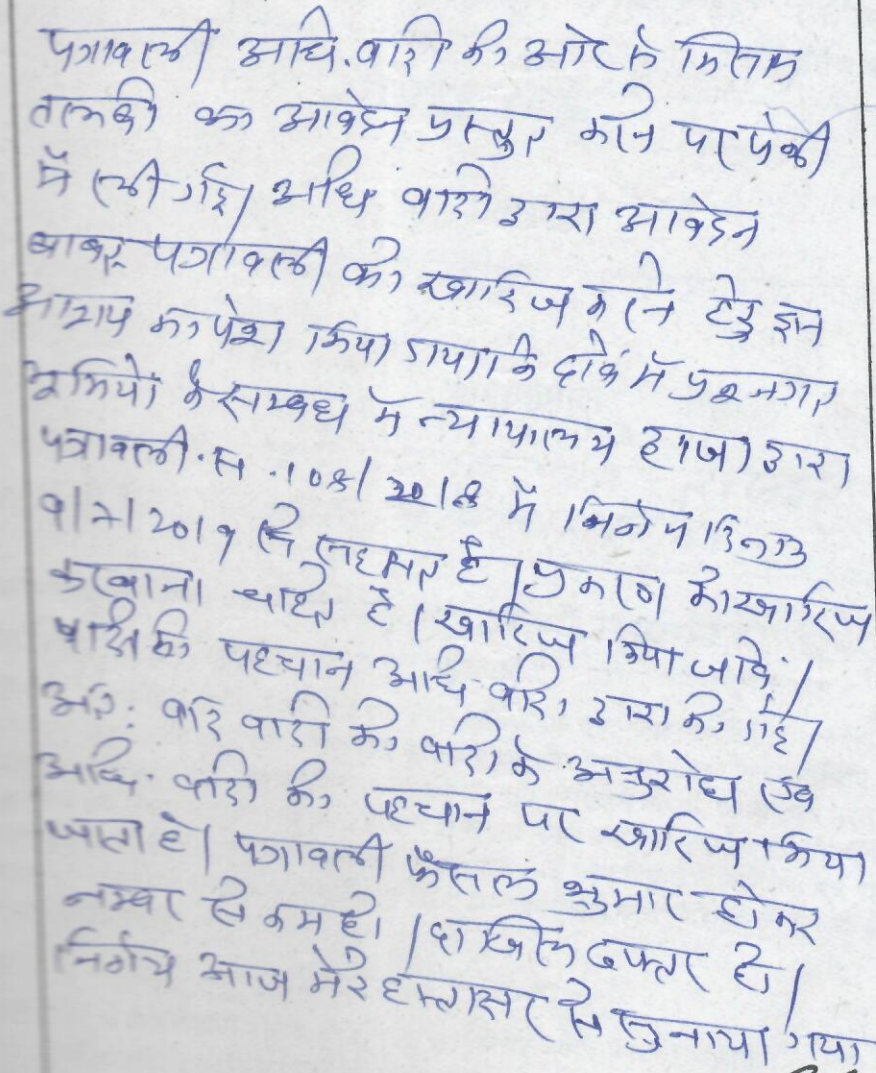 पत्रावली अधि. वादी की ओर से मिसल
तलबी का आवेदन प्रस्तुत करने पर पेशी
में ली गई। अधि वादी द्वारा आवेदन
बाबत पत्रावली को खारिज करने हेतु इस
आशय का पेश किया गया कि दावे में प्रश्नगत
भूमियों के सम्बंध में न्यायालय हाजा द्वारा
पत्रावली. स. 108/2018 में निर्णय दिनांक
9/7/2019 से सहमत है। प्रकरण को खारिज
करवाना चाहते है। खारिज किया जावे।
वादी की पहचान अधि. वादी द्वारा की गई।
अतः वाद वादी को वादी के अनुरोध एवं
अधि. वादी की पहचान पर खारिज किया
जाता है। पत्रावली फैसल शुमार होकर
नम्बर से कम हो। दाखिल दफ्तर हो।
निर्णय आज मेरे हस्ताक्षर से सुनाया गया